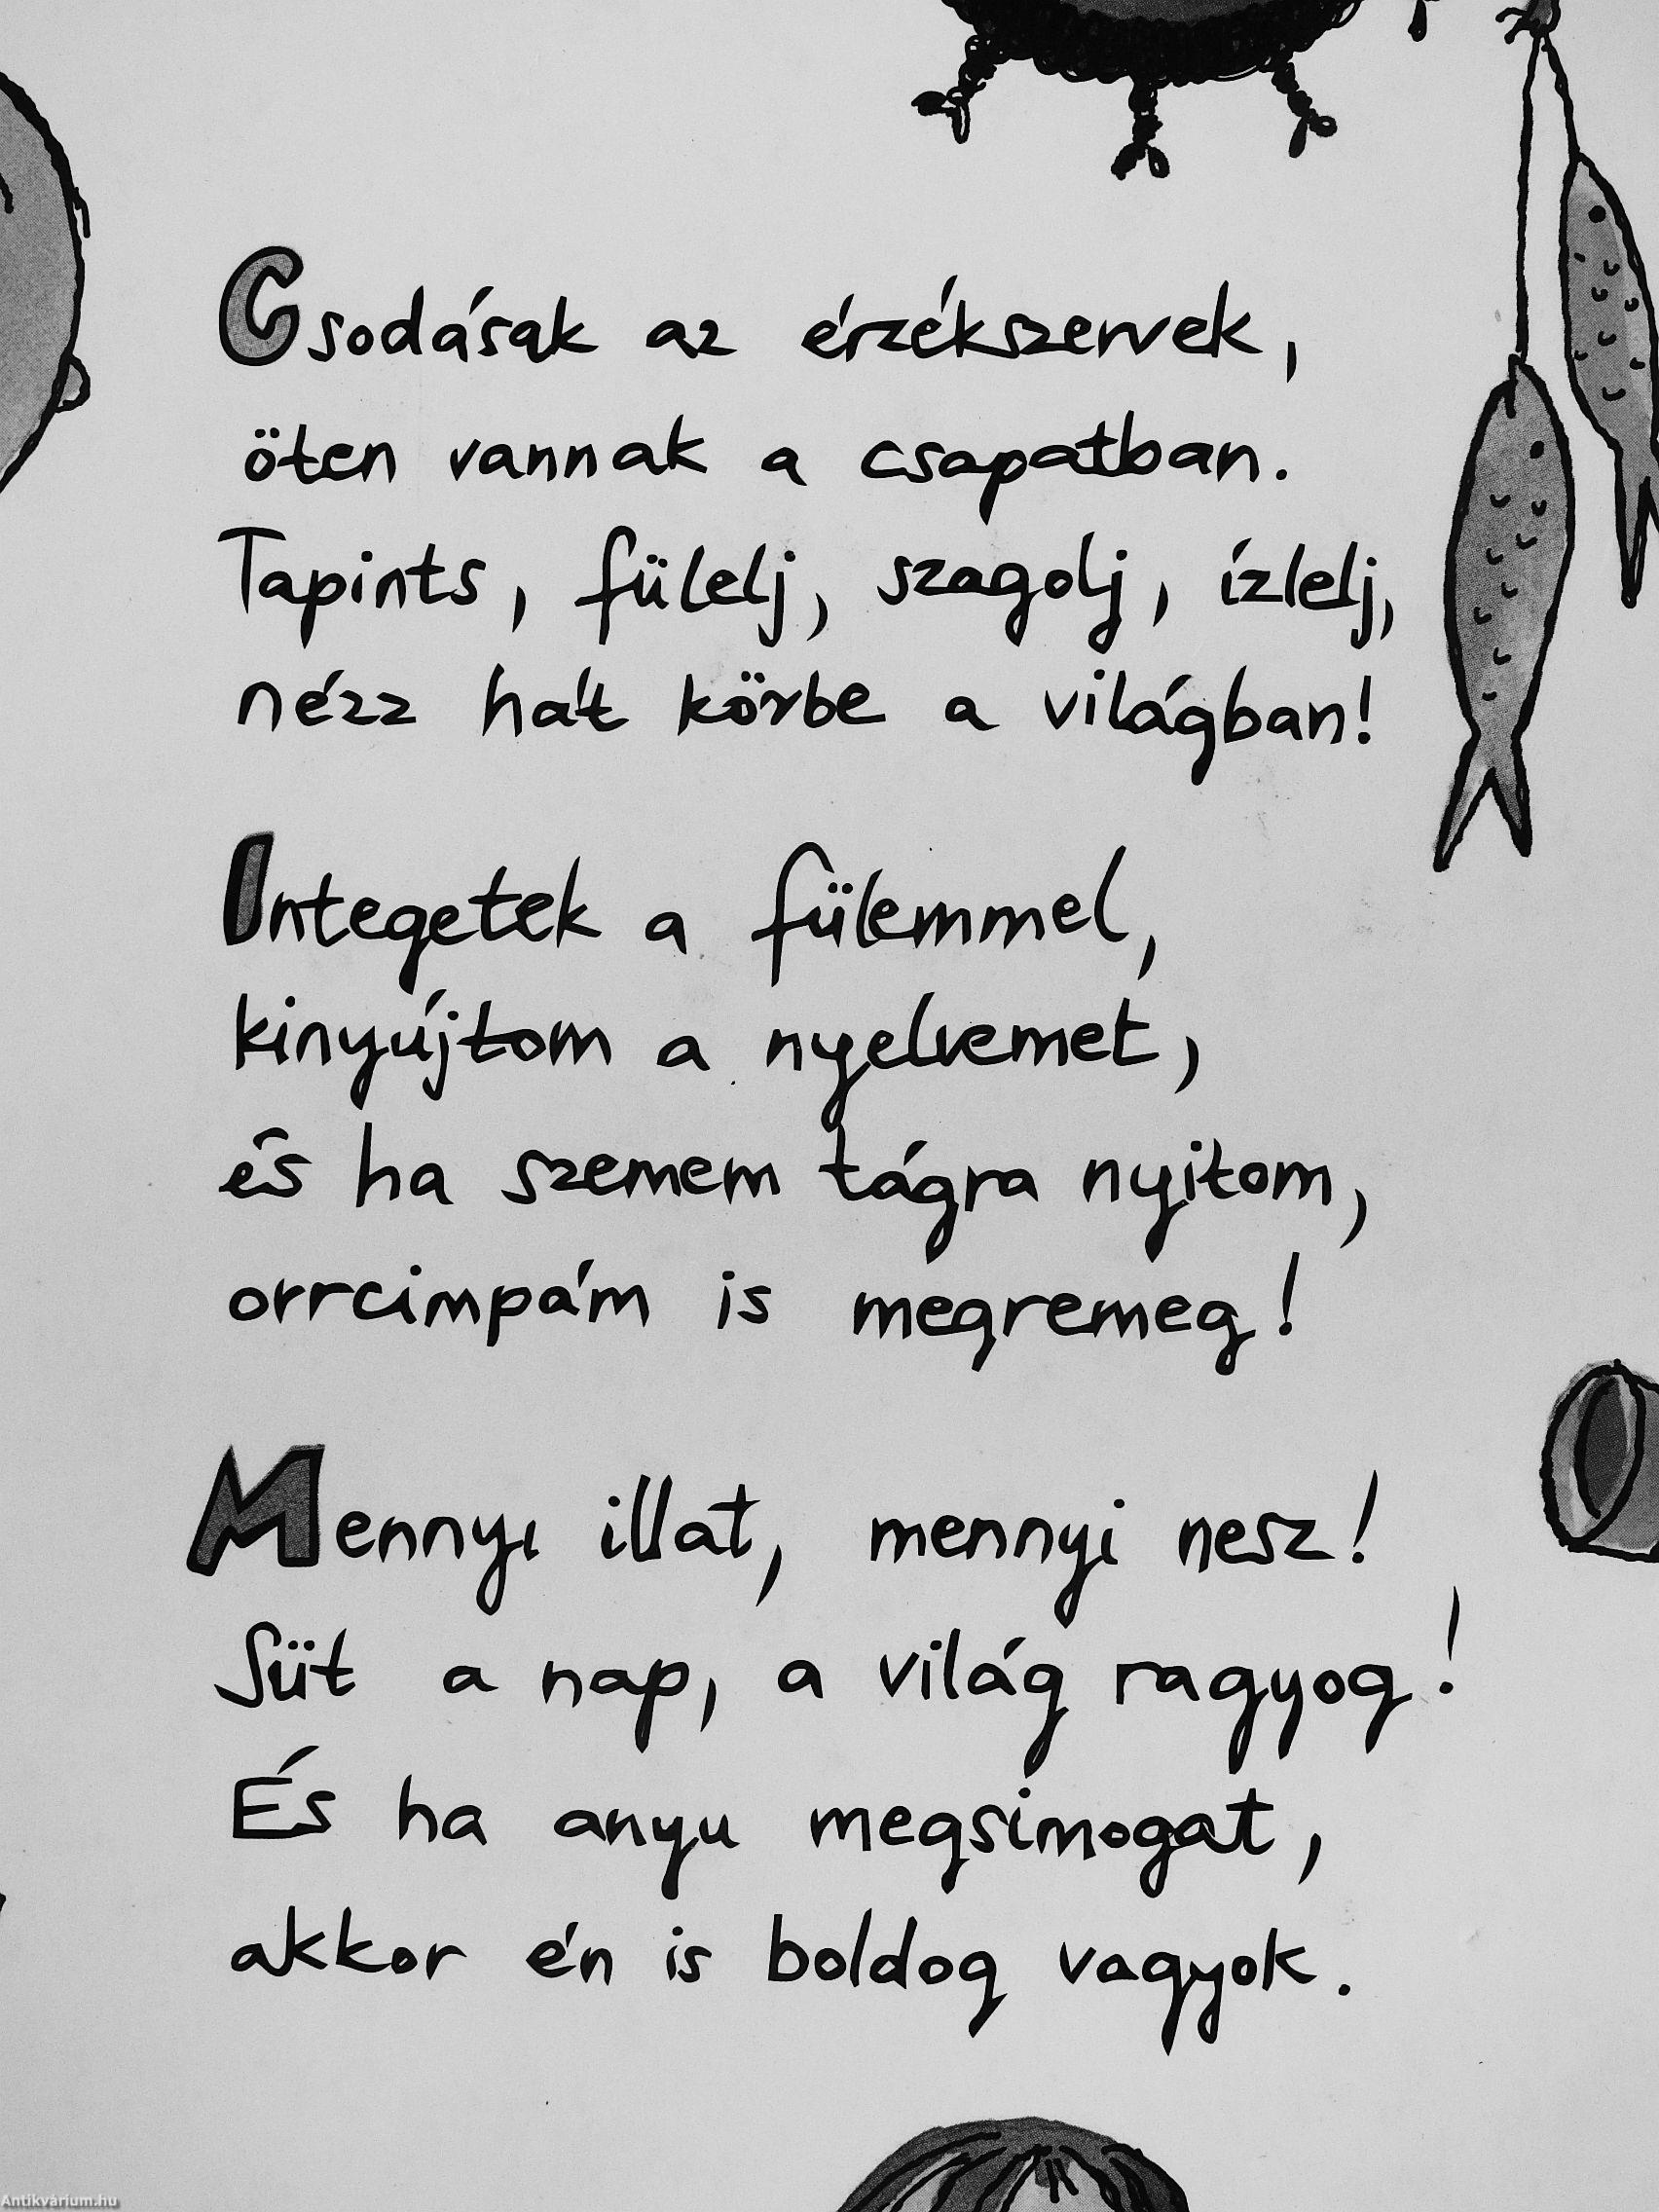 Csodásak az érzékszervek,
öten vannak a csapatban.
Tapints, fülelj, szagolj, ízlelj,
nézz hát körbe a világban!
Integetek a fülemmel,
kinyújtom a nyelvemet,
és ha szemem tágra nyitom,
orrcimpám is megremeg!
Mennyi illat, mennyi nesz!
Süt a nap, a világ ragyog!
És ha anyu megsimogat,
akkor én is boldog vagyok.
Antikvárium.hu